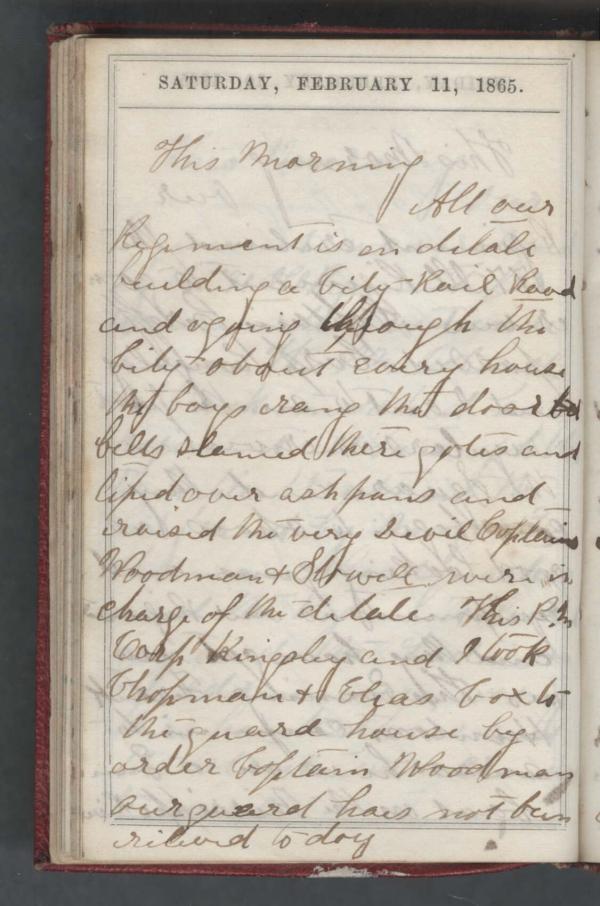 SATURDAY, FEBRUARY 11, 1865.
This Morning
All our
Regiment is on ditale
building a City Rail Road
and going through the
City about every house
the boys rang the door
bells slamed there gates and
tiped over ash pans and
raised the very Devil Captains
Woodman & Stowell were in
charge of the ditale This P.M
Corp Kingsley and I took
Chapman & Elias Cox to
the guard house by
order Captain Woodman
our guard has not bun
rilievd to day